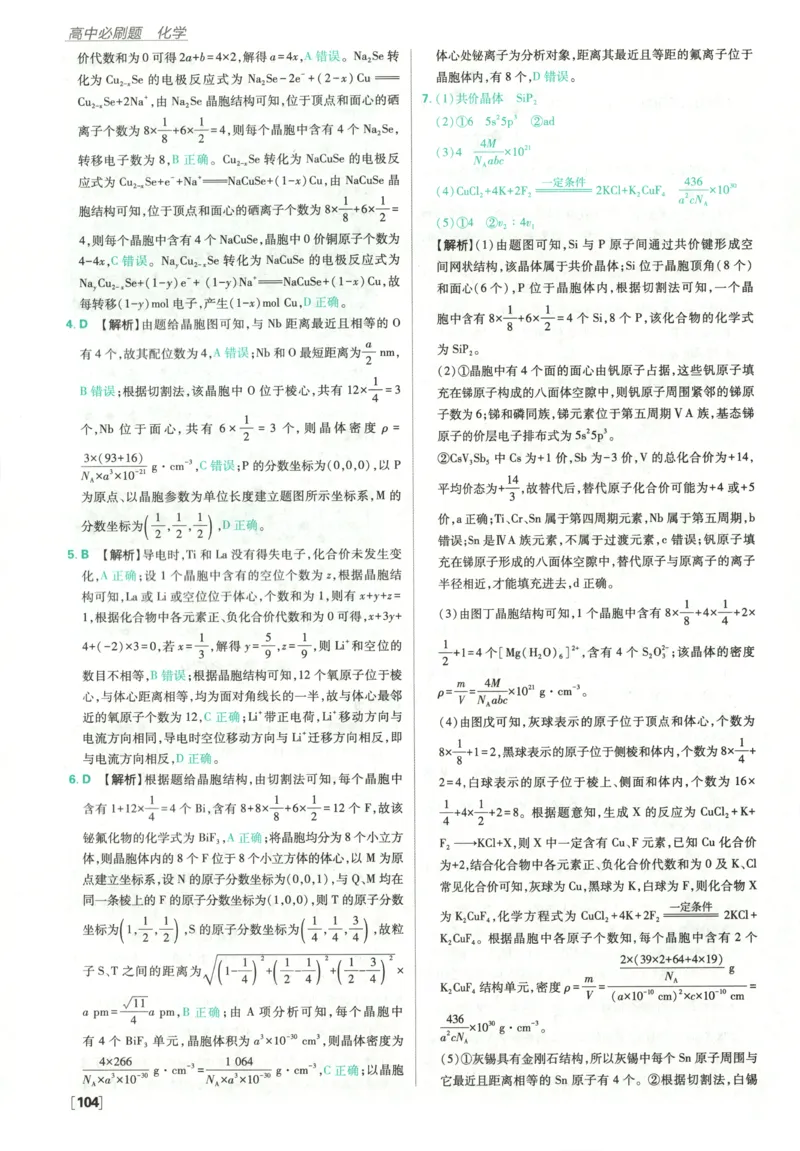 高中必刷题 化学
价代数和为0可得2a+b=4×2,解得a=4x,A错误。Na₂Se转
化为 Cu₂₋ₓSe 的电极反应式为 Na₂Se−2e⁻+(2−x)Cu ══
Cu₂₋ₓSe+2Na⁺,由 Na₂Se 晶胞结构可知,位于顶点和面心的硒
离子个数为8×1/8+6×1/2=4,则每个晶胞中含有4个Na₂Se,
转移电子数为8,B正确。Cu₂₋ₓSe转化为NaCuSe的电极反
应式为Cu₂₋ₓSe+e⁻+Na⁺══NaCuSe+(1−x)Cu,由NaCuSe晶
胞结构可知,位于顶点和面心的硒离子个数为8×1/8+6×1/2=
4,则每个晶胞中含有4个NaCuSe,晶胞中0价铜原子个数为
4−4x,C错误。NaᵧCu₂₋ₓSe转化为NaCuSe的电极反应式为
NaᵧCu₂₋ₓSe+(1−y)e⁻+(1−y)Na⁺══NaCuSe+(1−x)Cu,故
每转移(1−y)mol电子,产生(1−x)mol Cu,D正确。
4. D 【解析】由题给晶胞图可知,与Nb距离最近且相等的O
有4个,故其配位数为4,A错误;Nb和O最短距离为a/2 nm,
B错误;根据切割法,该晶胞中O位于棱心,共有12×1/4=3
个,Nb位于面心,共有6×1/2=3个,则晶体密度ρ=
3×(93+16)/(N_A×a³×10⁻²¹) g·cm⁻³,C错误;P的分数坐标为(0,0,0),以P
为原点、以晶胞参数为单位长度建立题图所示坐标系,M的
分数坐标为(1/2,1/2,1/2),D正确。
5. B 【解析】导电时,Ti和La没有得失电子,化合价未发生变
化,A正确;设1个晶胞中含有的空位个数为z,根据晶胞结
构可知,La或Li或空位位于体心,个数和为1,则有x+y+z=
1,根据化合物中各元素正、负化合价代数和为0可得,x+3y+
4+(−2)×3=0,若x=1/3,解得y=5/9,z=1/9,则Li⁺和空位的
数目不相等,B错误;根据晶胞结构可知,12个氧原子位于棱
心,与体心距离相等,均为面对角线长的一半,故与体心最邻
近的氧原子个数为12,C正确;Li⁺带正电荷,Li⁺移动方向与
电流方向相同,导电时空位移动方向与Li⁺迁移方向相反,即
与电流方向相反,D正确。
6. D 【解析】根据题给晶胞结构,由切割法可知,每个晶胞中
含有1+12×1/4=4个Bi,含有8+8×1/8+6×1/2=12个F,故该
铋氟化物的化学式为BiF₃,A正确;将晶胞均分为8个小立方
体,则晶胞体内的8个F位于8个小立方体的体心,以M为原
点建立坐标系,设N的原子分数坐标为(0,0,1),与Q、M均在
同一条棱上的F的原子分数坐标为(1,0,0),则T的原子分数
坐标为(1,1/2,1/2),S的原子分数坐标为(1/4,1/4,3/4),故粒
子S、T之间的距离为√((1−1/4)²+(1/2−1/4)²+(1/2−3/4)²)×
a pm=√11/4 a pm,B正确;由A项分析可知,每个晶胞中
有4个BiF₃单元,晶胞体积为a³×10⁻³⁰ cm³,则晶体密度为
4×266/(N_A×a³×10⁻³⁰) g·cm⁻³=1 064/(N_A×a³×10⁻³⁰) g·cm⁻³,C正确;以晶胞
[104]
体心处铋离子为分析对象,距离其最近且等距的氟离子位于
晶胞体内,有8个,D错误。
7. (1)共价晶体 SiP₂
(2)①6 5s²5p³ ②ad
(3)4 4M/(N_A abc)×10²¹
(4)CuCl₂+4K+2F₂ ══一定条件══ 2KCl+K₂CuF₄ 436/(a²cN_A)×10³⁰
(5)①4 ②v₂∶4v₁
【解析】(1)由题图可知,Si与P原子间通过共价键形成空
间网状结构,该晶体属于共价晶体;Si位于晶胞顶角(8个)
和面心(6个),P位于晶胞体内,根据切割法可知,一个晶
胞中含有8×1/8+6×1/2=4个Si,8个P,该化合物的化学式
为SiP₂。
(2)①晶胞中有4个面的面心由钒原子占据,这些钒原子填
充在锑原子构成的八面体空隙中,则钒原子周围紧邻的锑原
子数为6;锑和磷同族,锑元素位于第五周期ⅤA族,基态锑
原子的价层电子排布式为5s²5p³。
②CsV₃Sb₅中Cs为+1价,Sb为−3价,V的总化合价为+14,
平均价态为+14/3,故替代后,替代原子化合价可能为+4或+5
价,a正确;Ti、Cr、Sn属于第四周期元素,Nb属于第五周期,b
错误;Sn是ⅣA族元素,不属于过渡元素,c错误;钒原子填
充在锑原子形成的八面体空隙中,替代原子与原离子的离子
半径相近,才能填充进去,d正确。
(3)由图丁晶胞结构可知,1个晶胞中含有8×1/8+4×1/4+2×
1/2+1=4个[Mg(H₂O)₆]²⁺,含有4个S₂O₃²⁻;该晶体的密度
ρ=m/V=4M/(N_A abc)×10²¹ g·cm⁻³。
(4)由图戊可知,灰球表示的原子位于顶点和体心,个数为
8×1/8+1=2,黑球表示的原子位于侧棱和体内,个数为8×1/4+
2=4,白球表示的原子位于棱上、侧面和体内,个数为16×
1/4+4×1/2+2=8。根据题意知,生成X的反应为CuCl₂+K+
F₂ ⟶KCl+X,则X中一定含有Cu、F元素,已知Cu化合价
为+2,结合化合物中各元素正、负化合价代数和为0及K、Cl
常见化合价可知,灰球为Cu,黑球为K,白球为F,则化合物X
为K₂CuF₄,化学方程式为CuCl₂+4K+2F₂ ══一定条件══ 2KCl+
K₂CuF₄。根据晶胞中各原子个数知,每个晶胞中含有2个
K₂CuF₄结构单元,密度ρ=m/V=(2×(39×2+64+4×19)/N_A g)/((a×10⁻¹⁰ cm)²×c×10⁻¹⁰ cm)=
436/(a²cN_A)×10³⁰ g·cm⁻³。
(5)①灰锡具有金刚石结构,所以灰锡中每个Sn原子周围与
它最近且距离相等的Sn原子有4个。②根据切割法,白锡